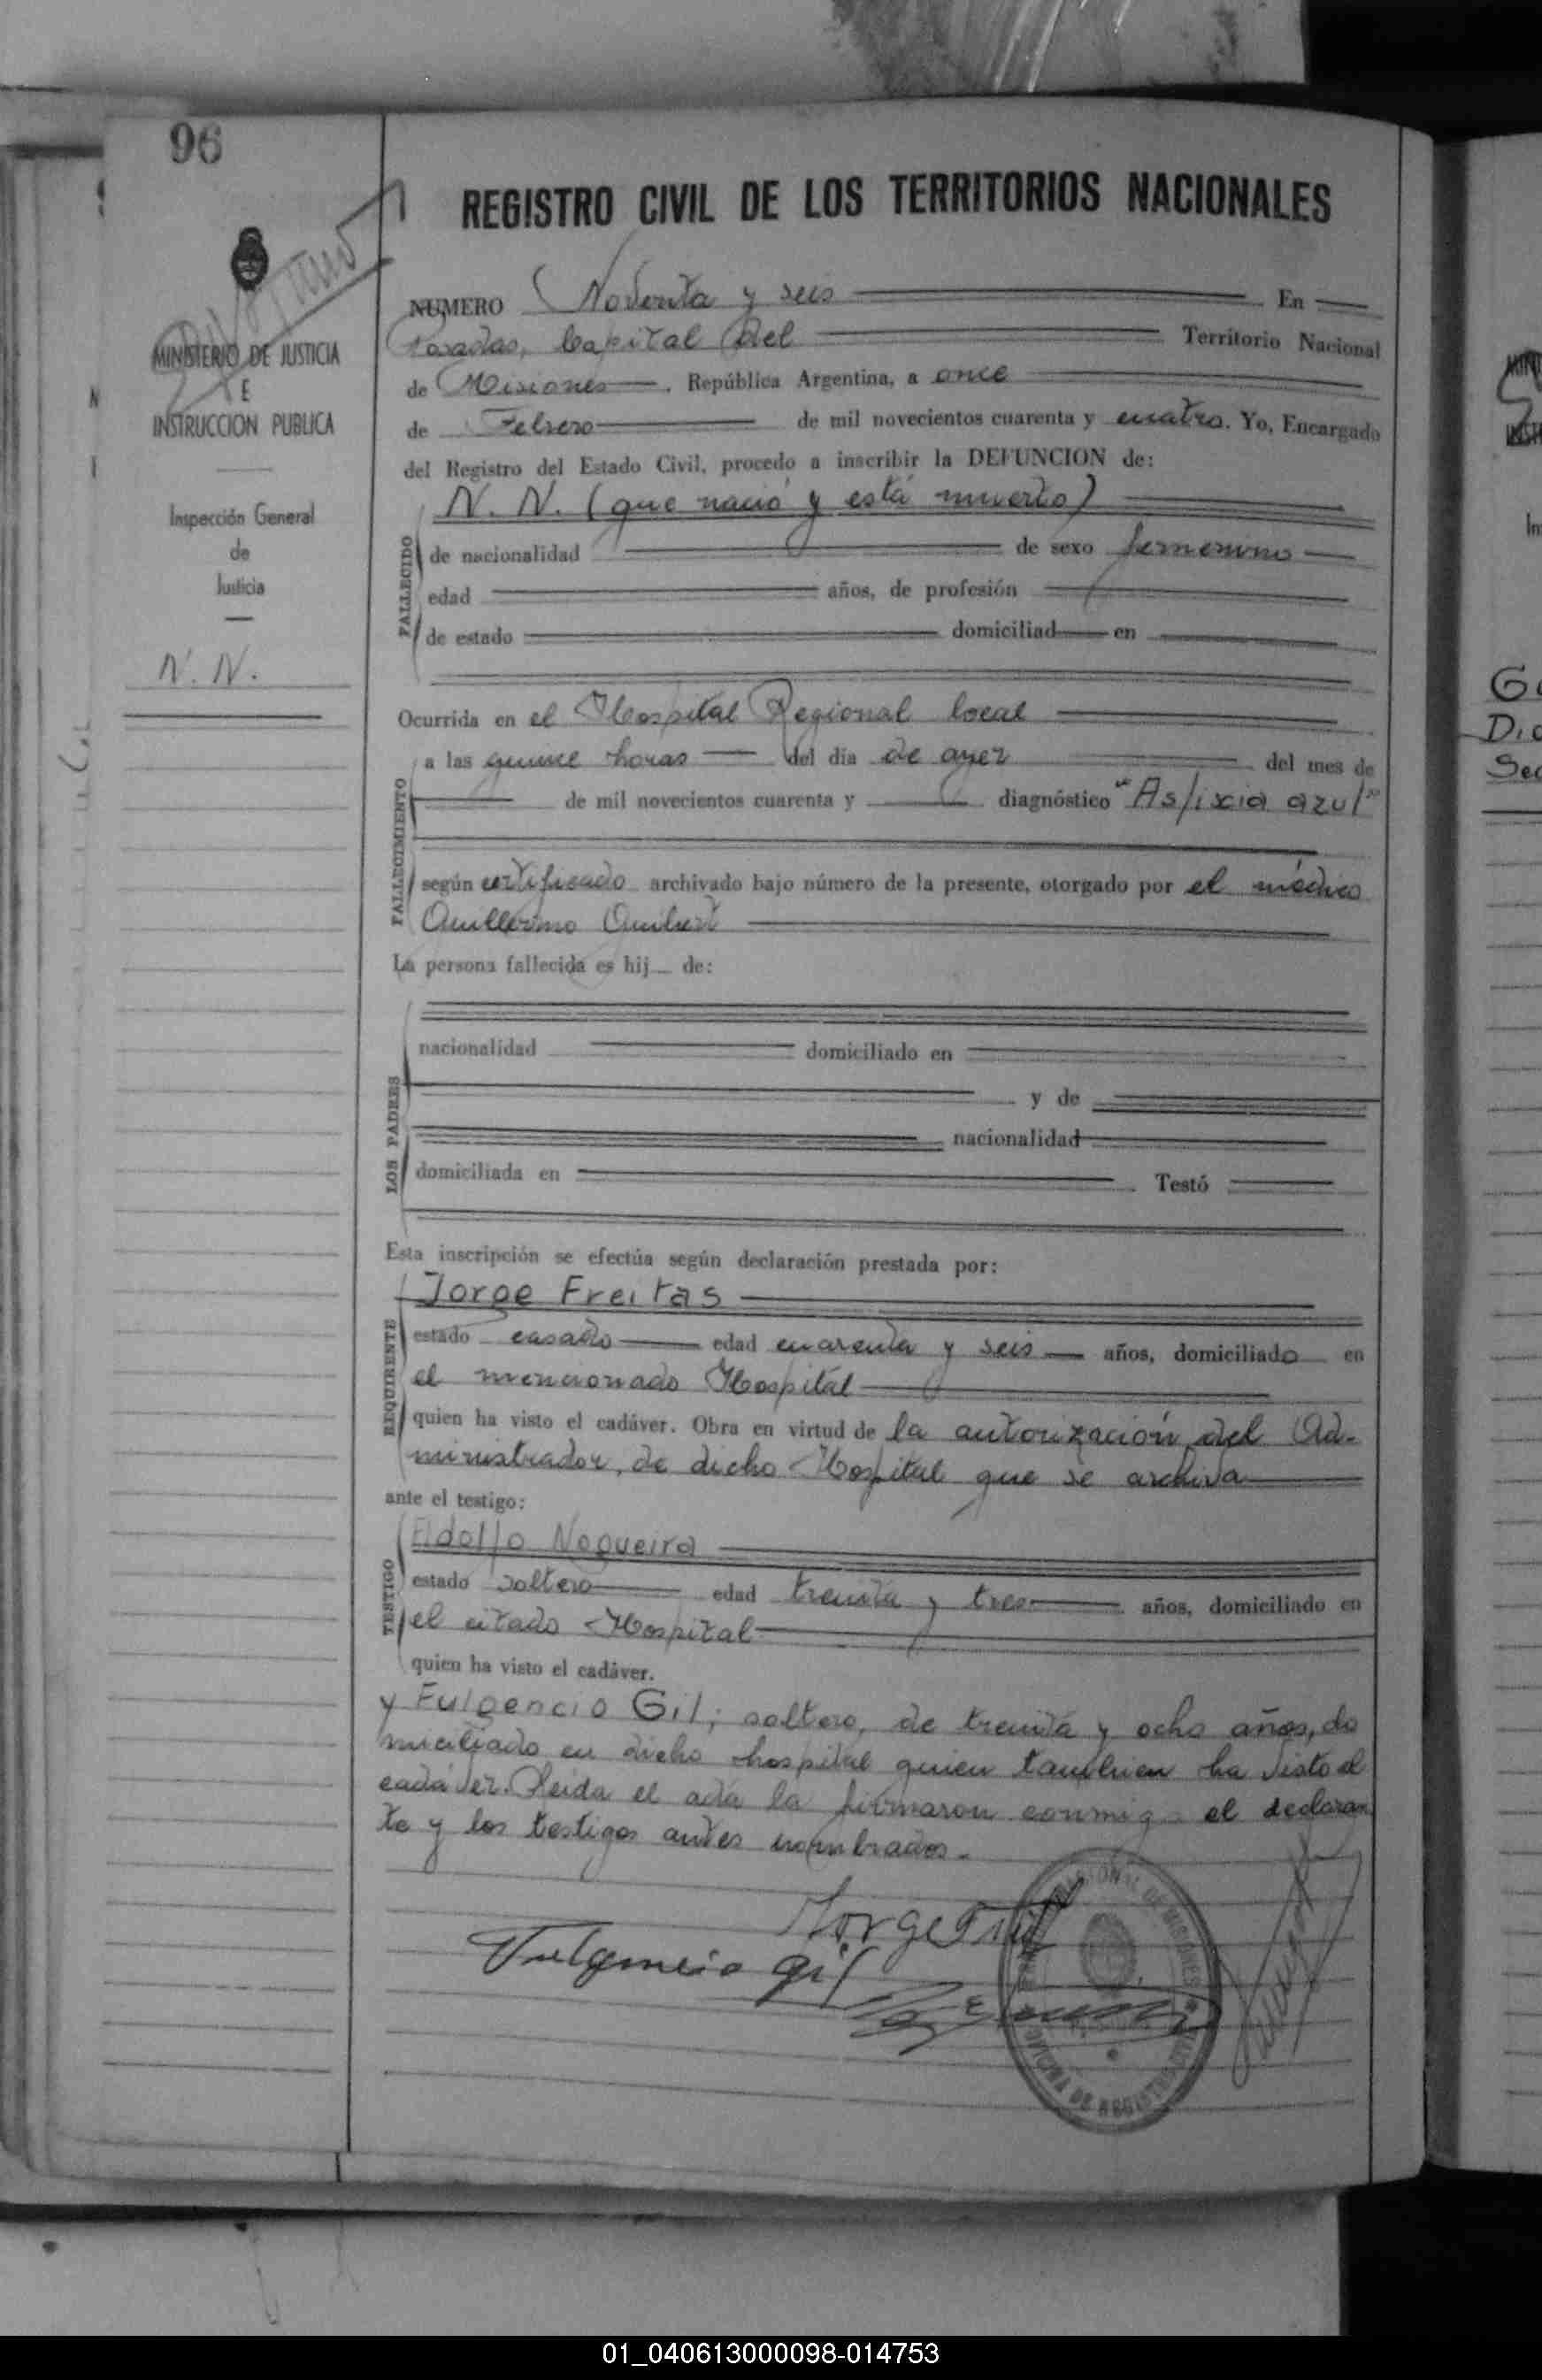 96
REGISTRO CIVIL DE LOS TERRITORIOS NACIONALES
MINISTERIO DE JUSTICIA
E
INSTRUCCION PUBLICA
Inspección General
de
Justicia
N. N.
NUMERO Noventa y seis En
Posadas, Capital del Territorio Nacional
de Misiones. República Argentina, a once
de Febrero de mil novecientos cuarenta y cuatro. Yo, Encargado
del Registro del Estado Civil, procedo a inscribir la DEFUNCION de:
N. N. (que nació y está muerto)
FALLECIDO
de nacionalidad de sexo femenino
edad años, de profesión
de estado domiciliad en
Ocurrida en el Hospital Regional local
FALLECIMIENTO
a las quince horas del día de ayer del mes de
de mil novecientos cuarenta y diagnóstico "Asfixia azul"
según certificado archivado bajo número de la presente, otorgado por el médico
Guillermo
La persona fallecida es hij de:
LOS PADRES
nacionalidad domiciliado en
y de
nacionalidad
domiciliada en Testó
Esta inscripción se efectúa según declaración prestada por:
REQUIRENTE
Jorge Freitas
estado casado edad cuarenta y seis años, domiciliado en
el mencionado Hospital
quien ha visto el cadáver. Obra en virtud de la autorización del Ad-
ministrador, de dicho Hospital que se archiva
ante el testigo:
TESTIGO
Adolfo Nogueira
estado soltero edad treinta y tres años, domiciliado en
el citado Hospital
quien ha visto el cadáver.
y Fulgencio Gil; soltero, de treinta y ocho años, do
miciliado en dicho hospital quien tambien ha visto el
cadáver. Leida el acta la firmaron conmigo el declaran
te y los testigos antes nombrados.
Fulgencio Gil
MISIONES
OFICINA DE REGISTRO CIVIL
MINI
In
Sec
01_040613000098-014753